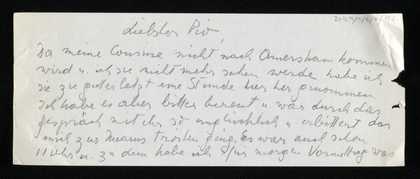 Liebster Pio,
Da meine Cousine nicht nach Amersham kommen
wird u. ich sie nicht mehr sehen werde habe ich
sie zu guter letzt eine Stunde hier her genommen
Ich habe es aber bitter bereut u. war durch das
gespräch mit ihr so unglücklich u. erbittert das
ich zur trosten ging. Es war auch schon
11 Uhr u. zu dem habe ich für morgen Vormittag was